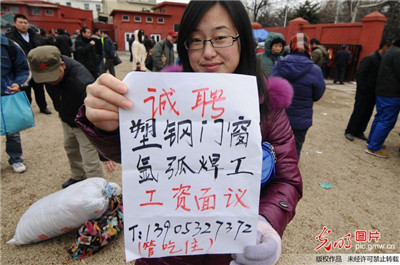 诚聘
塑钢门窗
氩弧焊工
工资面议
T:13905327372
(管吃住)
光明图片
pic.gmw.cn
版权作品 未经许可禁止转载